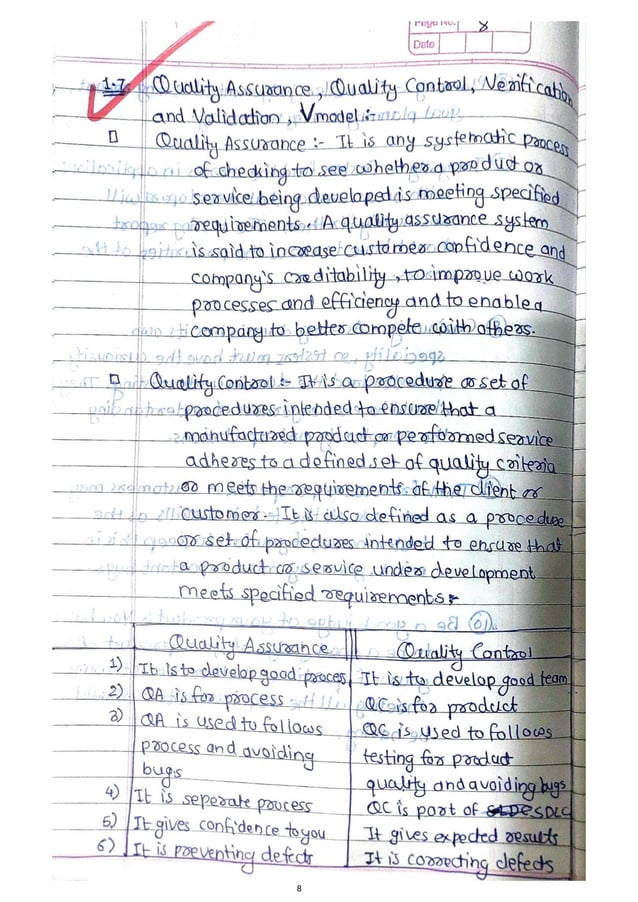 Page No. 8
Date
1.7. Quality Assurance, Quality Control, Verification
and Validation, V model :-
Quality Assurance :- It is any systematic process
of checking to see whether a product or
service being developed is meeting specified
requirements. A quality assurance system
is said to increase customer confidence and
company's creditability, to improve work
processes and efficiency and to enable a
company to better compete with others.
Quality Control :- It is a procedure or set of
procedures intended to ensure that a
manufactured product or performed service
adheres to a defined set of quality criteria
or meets the requirements of the client or
customer. It is also defined as a procedure
or set of procedures intended to ensure that
a product or service under development
meets specified requirements :-
Quality Assurance Quality Control
1) It is to develop good proces It is to develop good team
2) QA is for process QC is for product
3) QA is used to follows QC is used to follows
process and avoiding testing for product
bugs quality and avoiding bugs
4) It is seperate process QC is part of SDLC
5) It gives confidence to you It gives expected results
6) It is preventing defects It is correcting defects
8